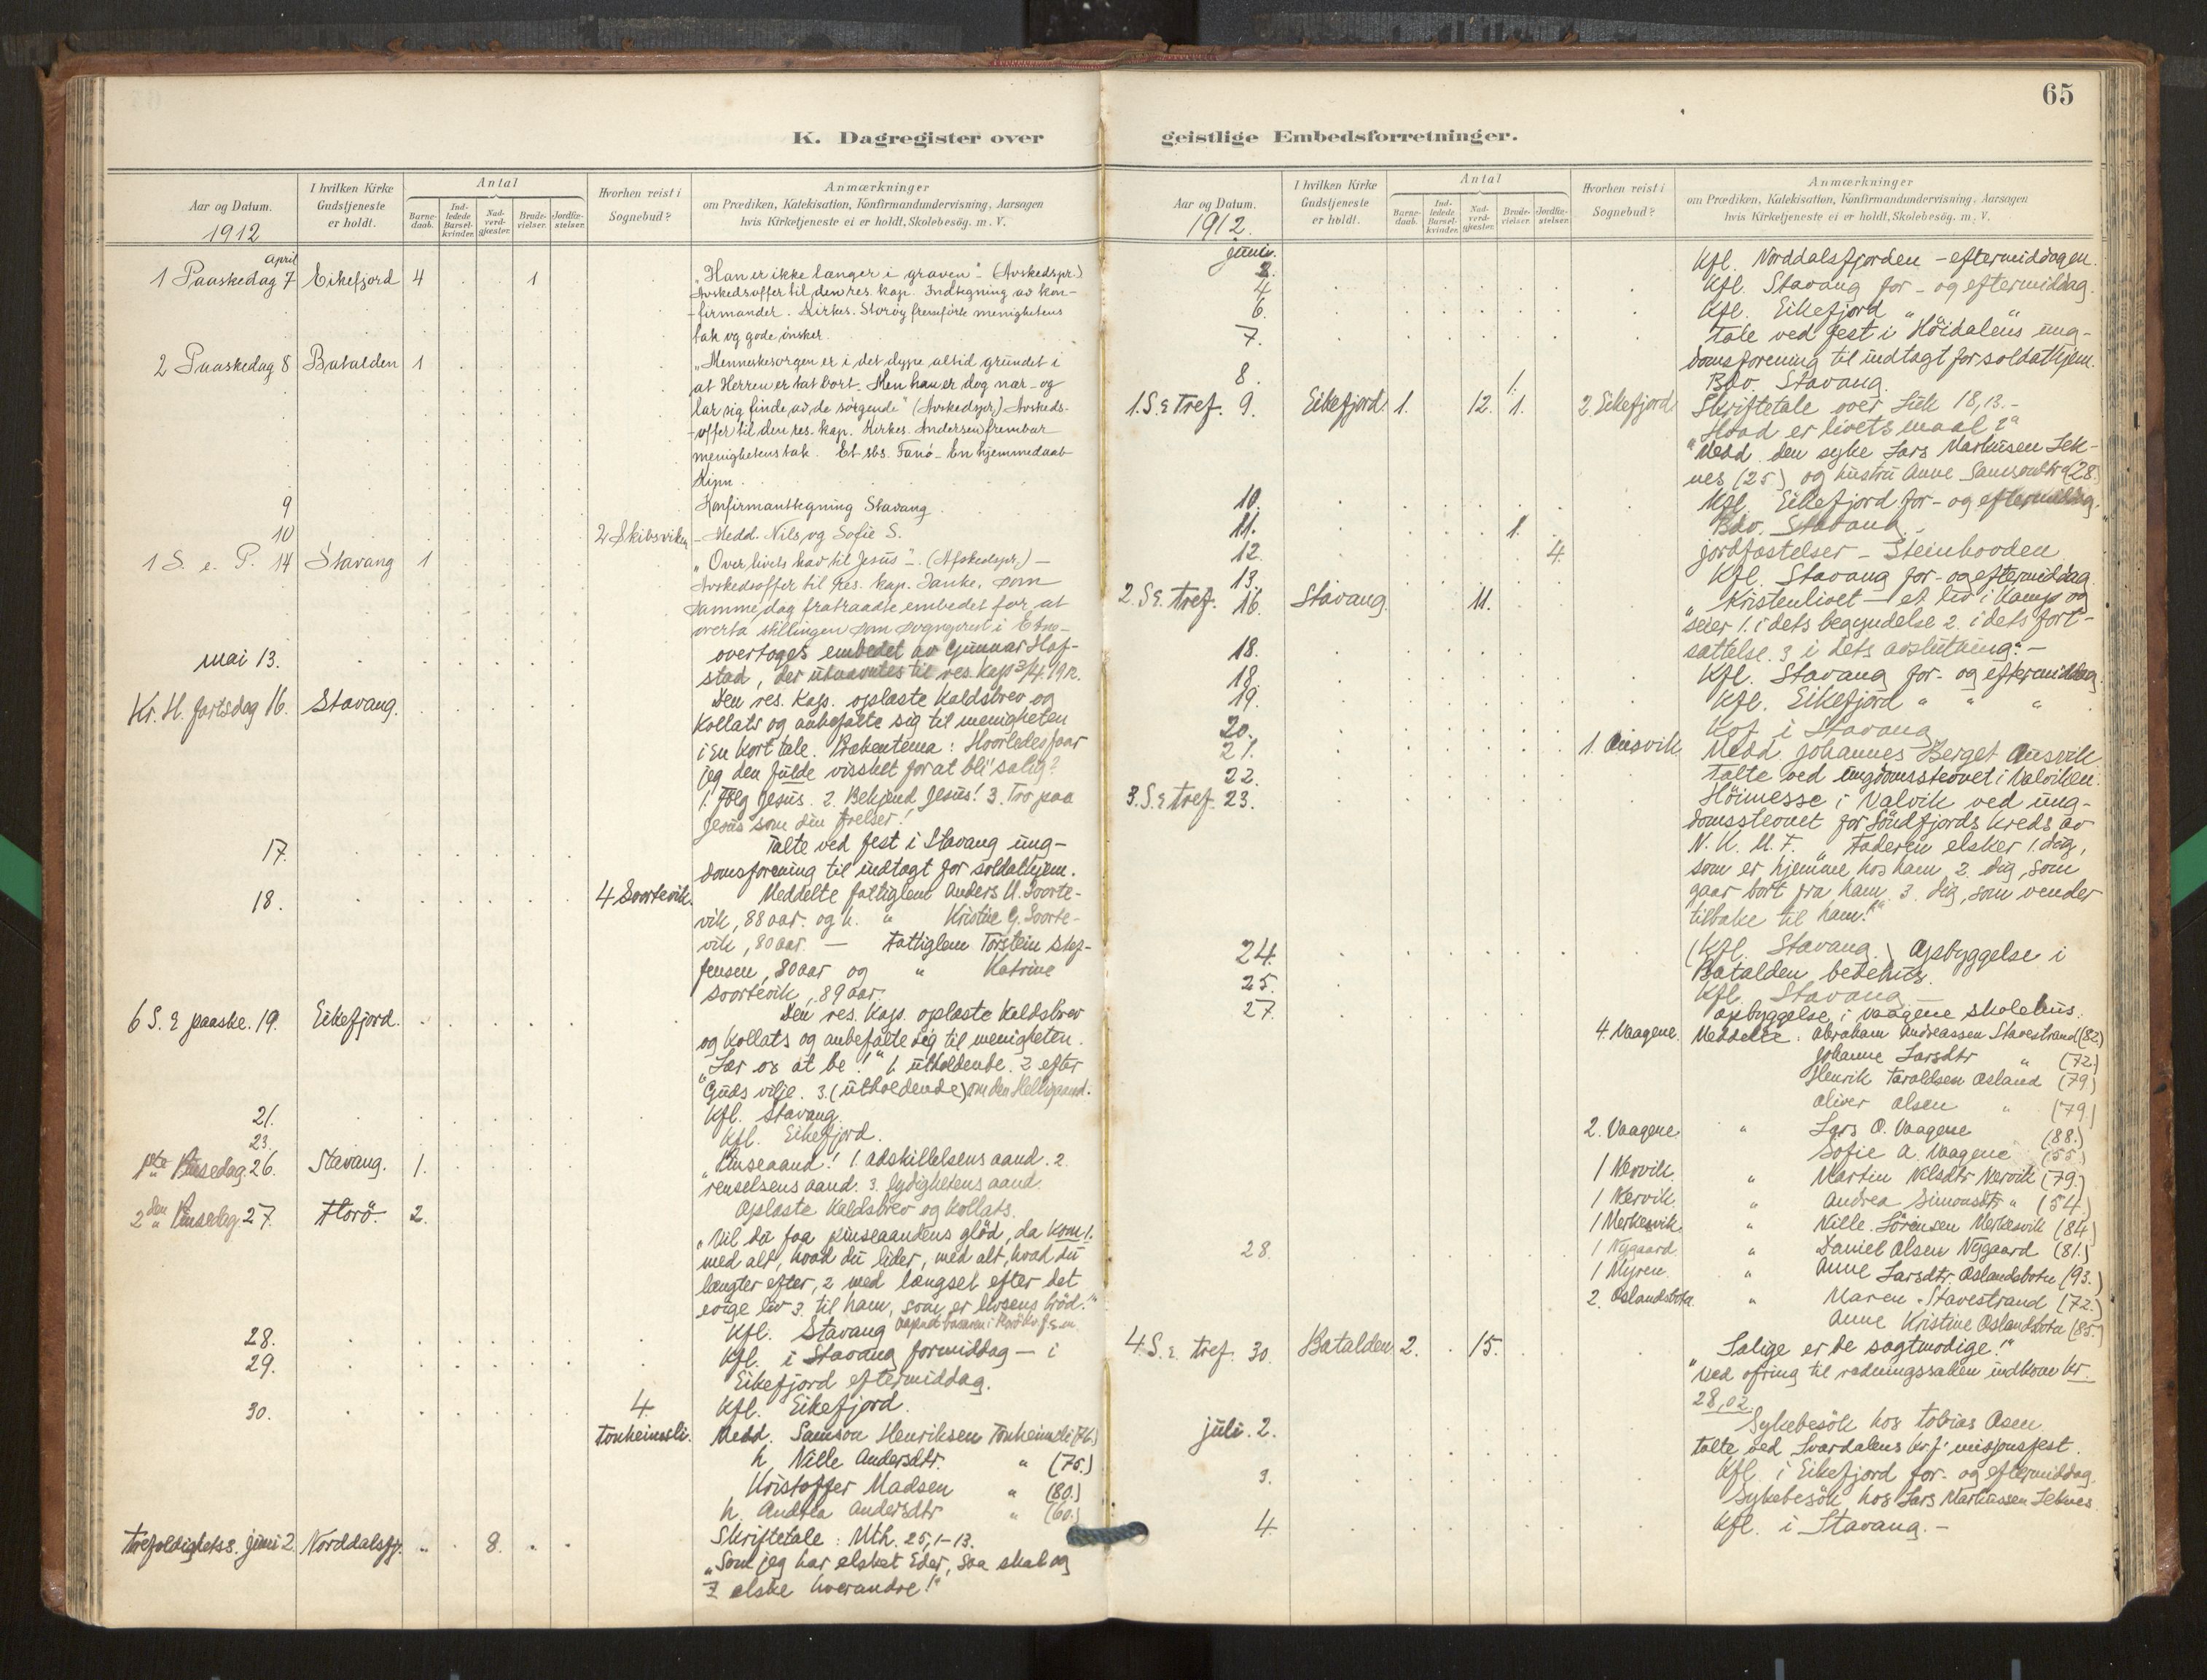 65
K. Dagregister over
geistlige Embedsforretninger.
Aar og Datum.
1912
I hvilken Kirke
Gudstjeneste
er holdt.
Antal
Barne-
daab.
Ind-
ledede
Barsel-
kvinder.
Nad-
verd-
gjæster.
Brude-
vielser.
Jordfæ-
stelser.
Hvorhen reist i
Sognebud?
Anmærkninger
om Prædiken, Katekisation, Konfirmandundervisning, Aarsagen
hvis Kirketjeneste ei er holdt, Skolebesøg. m. V.
April
1 Paaskedag 7 Eikefjord 4 1 „Han er ikke længer i graven" - (Avskedspr.)
Avskedsoffer til den res. kap. Indtegning av kon-
-firmander. Kirkes. Storøy fremførte menighetens
tak og gode ønsker.
2 Paaskedag 8 Batalden 1 „Menneskesorgen er i det dype altid grundet i
at Herren er tat bort. Men han er dog nær - og
lar sig finde av de sørgende" (Avskedspr.) Avskeds-
-offer til den res. kap. Kirkes. Andersen frembar
menighetens tak. Et sbs. Fanø - En hjemmedaab
Kinn.
9 Konfirmanttegning Stavang
10 2 Skibsviken - Medd. Nils og Sofie S.
1 S. e. P. 14 Stavang 1 „Over livets hav til Jesus" - (Afskedspr.) -
Avskedsoffer til res. kap. Janke, som
samme dag fratraadte embedet for at
overta stillingen som sogneprest i Etne -
mai 13. overtoges embedet av Gunnar Hof-
stad, der utnævntes til res. kap 3/4 1912.
Kr. H. fartsdag 16. Stavang. Den res. Kap. oplæste kaldsbrev og
Kollats og anbefalte sig til menigheten
i en kort tale. Prækentema: Hvorledes faar
jeg den fulde visshet for at bli salig?
1. Følg Jesus. 2. Bekjend Jesus! 3. Tro paa
Jesus som din frelser!
17. Talte ved fest i Stavang ung-
domsforening til indtægt for soldathjem.
18. 4 Svortevik. Meddelte fattiglem Anders M. Svorte-
vik, 88 aar. og h. " Kristine G. Svorte-
vik, 80 aar. — Fattiglem Torstein Stef-
fensen, 80 aar og " Katrine
Svortevik, 89 aar.
6 S. E paaske. 19. Eikefjord. Den res. Kap. oplæste kaldsbrev
og kollats og anbefalte sig til menigheten.
„Lær os at be!" 1. utholdende. 2 efter
Guds vilje. 3. (utholdende) om den Helligaand.
21. Kfl. Stavang.
23. Kfl. Eikefjord.
1ste Pinsedag. 26. Stavang. 1. „Pinseaand! 1. adskillelsens aand. 2.
renselsens aand. 3. lydighetens aand.
2den Pinsedag. 27. Florö. 2. Oplæste Kaldsbrev og kollats.
„Vil du faa pinseaandens glöd, da kom 1.
med alt, hvad du lider, med alt, hvad du
længter efter, 2 med længsel efter det
evige liv 3. til ham, som er livsens bröd."
28. Kfl. Stavang
29. Kfl. i Stavang formiddag — i
Eikefjord eftermiddag.
30. 4 Kfl. Eikefjord.
Tonheimsli. Medd. Samson Henriksen Tonheimsli (76.)
h. Nille Andersdtr. " (75.)
Kristoffer Madsen " (80.)
h. Andrea Andersdtr " (60.)
Trefoldighetss. juni 2 Norddalsfj. 8. Skriftetale: Mth. 25, 1-13.
„Som jeg har elsket Eder, saa skal og
I elske hverandre!"
Aar og Datum.
1912.
I hvilken Kirke
Gudstjeneste
er holdt.
Antal
Barne-
daab.
Ind-
ledede
Barsel-
kvinder.
Nad-
verd-
gjæster.
Brude-
vielser.
Jordfæ-
stelser.
Hvorhen reist i
Sognebud?
Anmærkninger
om Prædiken, Katekisation, Konfirmandundervisning, Aarsagen
hvis Kirketjeneste ei er holdt, Skolebesøg. m. V.
juni.
2. Kfl. Norddalsfjorden - eftermiddagen.
4 Kfl. Stavang for - og eftermiddag.
6. Kfl. Eikefjord " "
7. Tale ved fest i Höidalens ung-
domsforening til indtægt for soldathjem.
8. 1. Bdv. Stavang.
1. S. E Tref. 9. Eikefjord. 1. 12. 1. 2 Eikefjord Skriftetale over Luk 18,13. -
„Hvad er livets maal?"
Medd. den syke Lars Markusen Lek-
nes (25) og hustru Anne Samsondtr (28.)
10. Kfl. Eikefjord for - og eftermiddag.
11. 1. Bdv. Stavang.
12. 4. jordfæstelser - Steinhovden
13. Kfl. Stavang for - og eftermiddag.
2. S E. Tref. 16. Stavang. 11. „Kristenlivet - et liv i kamp og
seier 1. i dets begyndelse 2. i dets fort-
sættelse. 3 i dets avslutning." -
18. Kfl. Stavang for - og eftermiddag
18. Kfl. Eikefjord " " "
19.
20. Kof i Stavang
21. 1. Ausvik Medd Johannes Berget Ausvik.
22. Talte ved ungdomsstevnet i Valviken.
3. S. E Tref. 23. Höimesse i Valvik ved ung-
domsstevnet for Söndfjords kreds av
N. K. U. F. „Faderen elsker 1. dig,
som er hjemme hos ham 2. dig, som
gaar bort fra ham 3. dig, som vender
tilbake til ham!"
24. (Kfl. Stavang.) Opbyggelse i
Batalden bedehus.
25. Kfl. Stavang —
27. Opbyggelse i Vaagene skolehus.
4. Vaagene. Meddelte: Abraham Andreassen Stavestrand (82.)
Johanne Larsdtr " (72.)
Henrik Taraldsen Osland (79)
Oliver Olsen " (79.)
2. Vaagene. " Lars O. Vaagene (88.)
Sofie A. Vaagene (55)
1 Nervik. " Marten Nilsdtr Nervik (79.)
1 Nervik. " Andrea Simonsdtr " (54.)
1 Merkesvik " Nille Sörensen Merkesvik (84.)
28. 1 Nygaard. " Daniel Olsen Nygaard (81.)
1 Myren. " Anne Larsdtr. Oslandsbotn (93.)
2. Oslandsbotn " Maren Stavestrand (72.)
Anne Kristine Oslandsbotn (85.)
4. S. E. Tref. 30. Batalden 2. 15. „Salige er de sagtmodige!"
Ved ofring til redningssaken indkom kr.
28,02.
juli. 2. Sykebesök hos Tobias Osen
Talte ved Svardalens kr.f. misjonsfest.
3. Kfl. i Eikefjord for - og eftermiddag.
Sykebesök hos Lars Markussen Leknes
4. Kfl. i Stavang. -